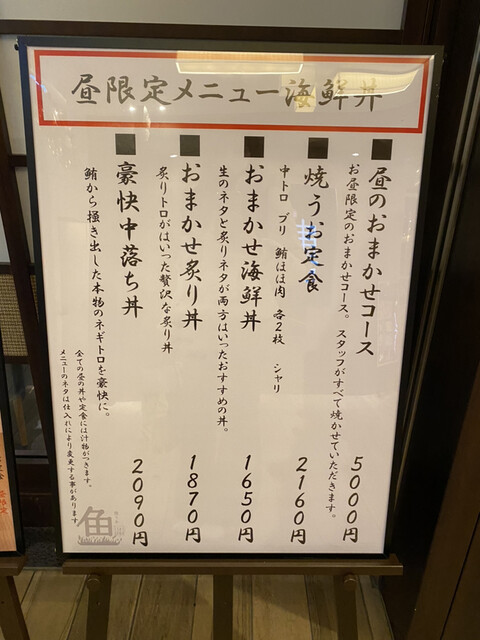 昼限定メニュー海鮮丼
■昼のおまかせコース 5000円
お昼限定のおまかせコース。スタッフがすべて焼かせていただきます。
■焼うお定食 2160円
中トロ ブリ 鮪ほほ肉 各2枚 シャリ
■おまかせ海鮮丼 1650円
生のネタと炙りネタが両方はいったおすすめの丼。
■おまかせ炙り丼 1870円
炙りトロがはいった贅沢な炙り丼
■豪快中落ち丼 2090円
鮪から掻き出した本物のネギトロを豪快に。
全ての昼の丼や定食には汁物がつきます。
メニューのネタは仕入れにより変更する事があります
魚